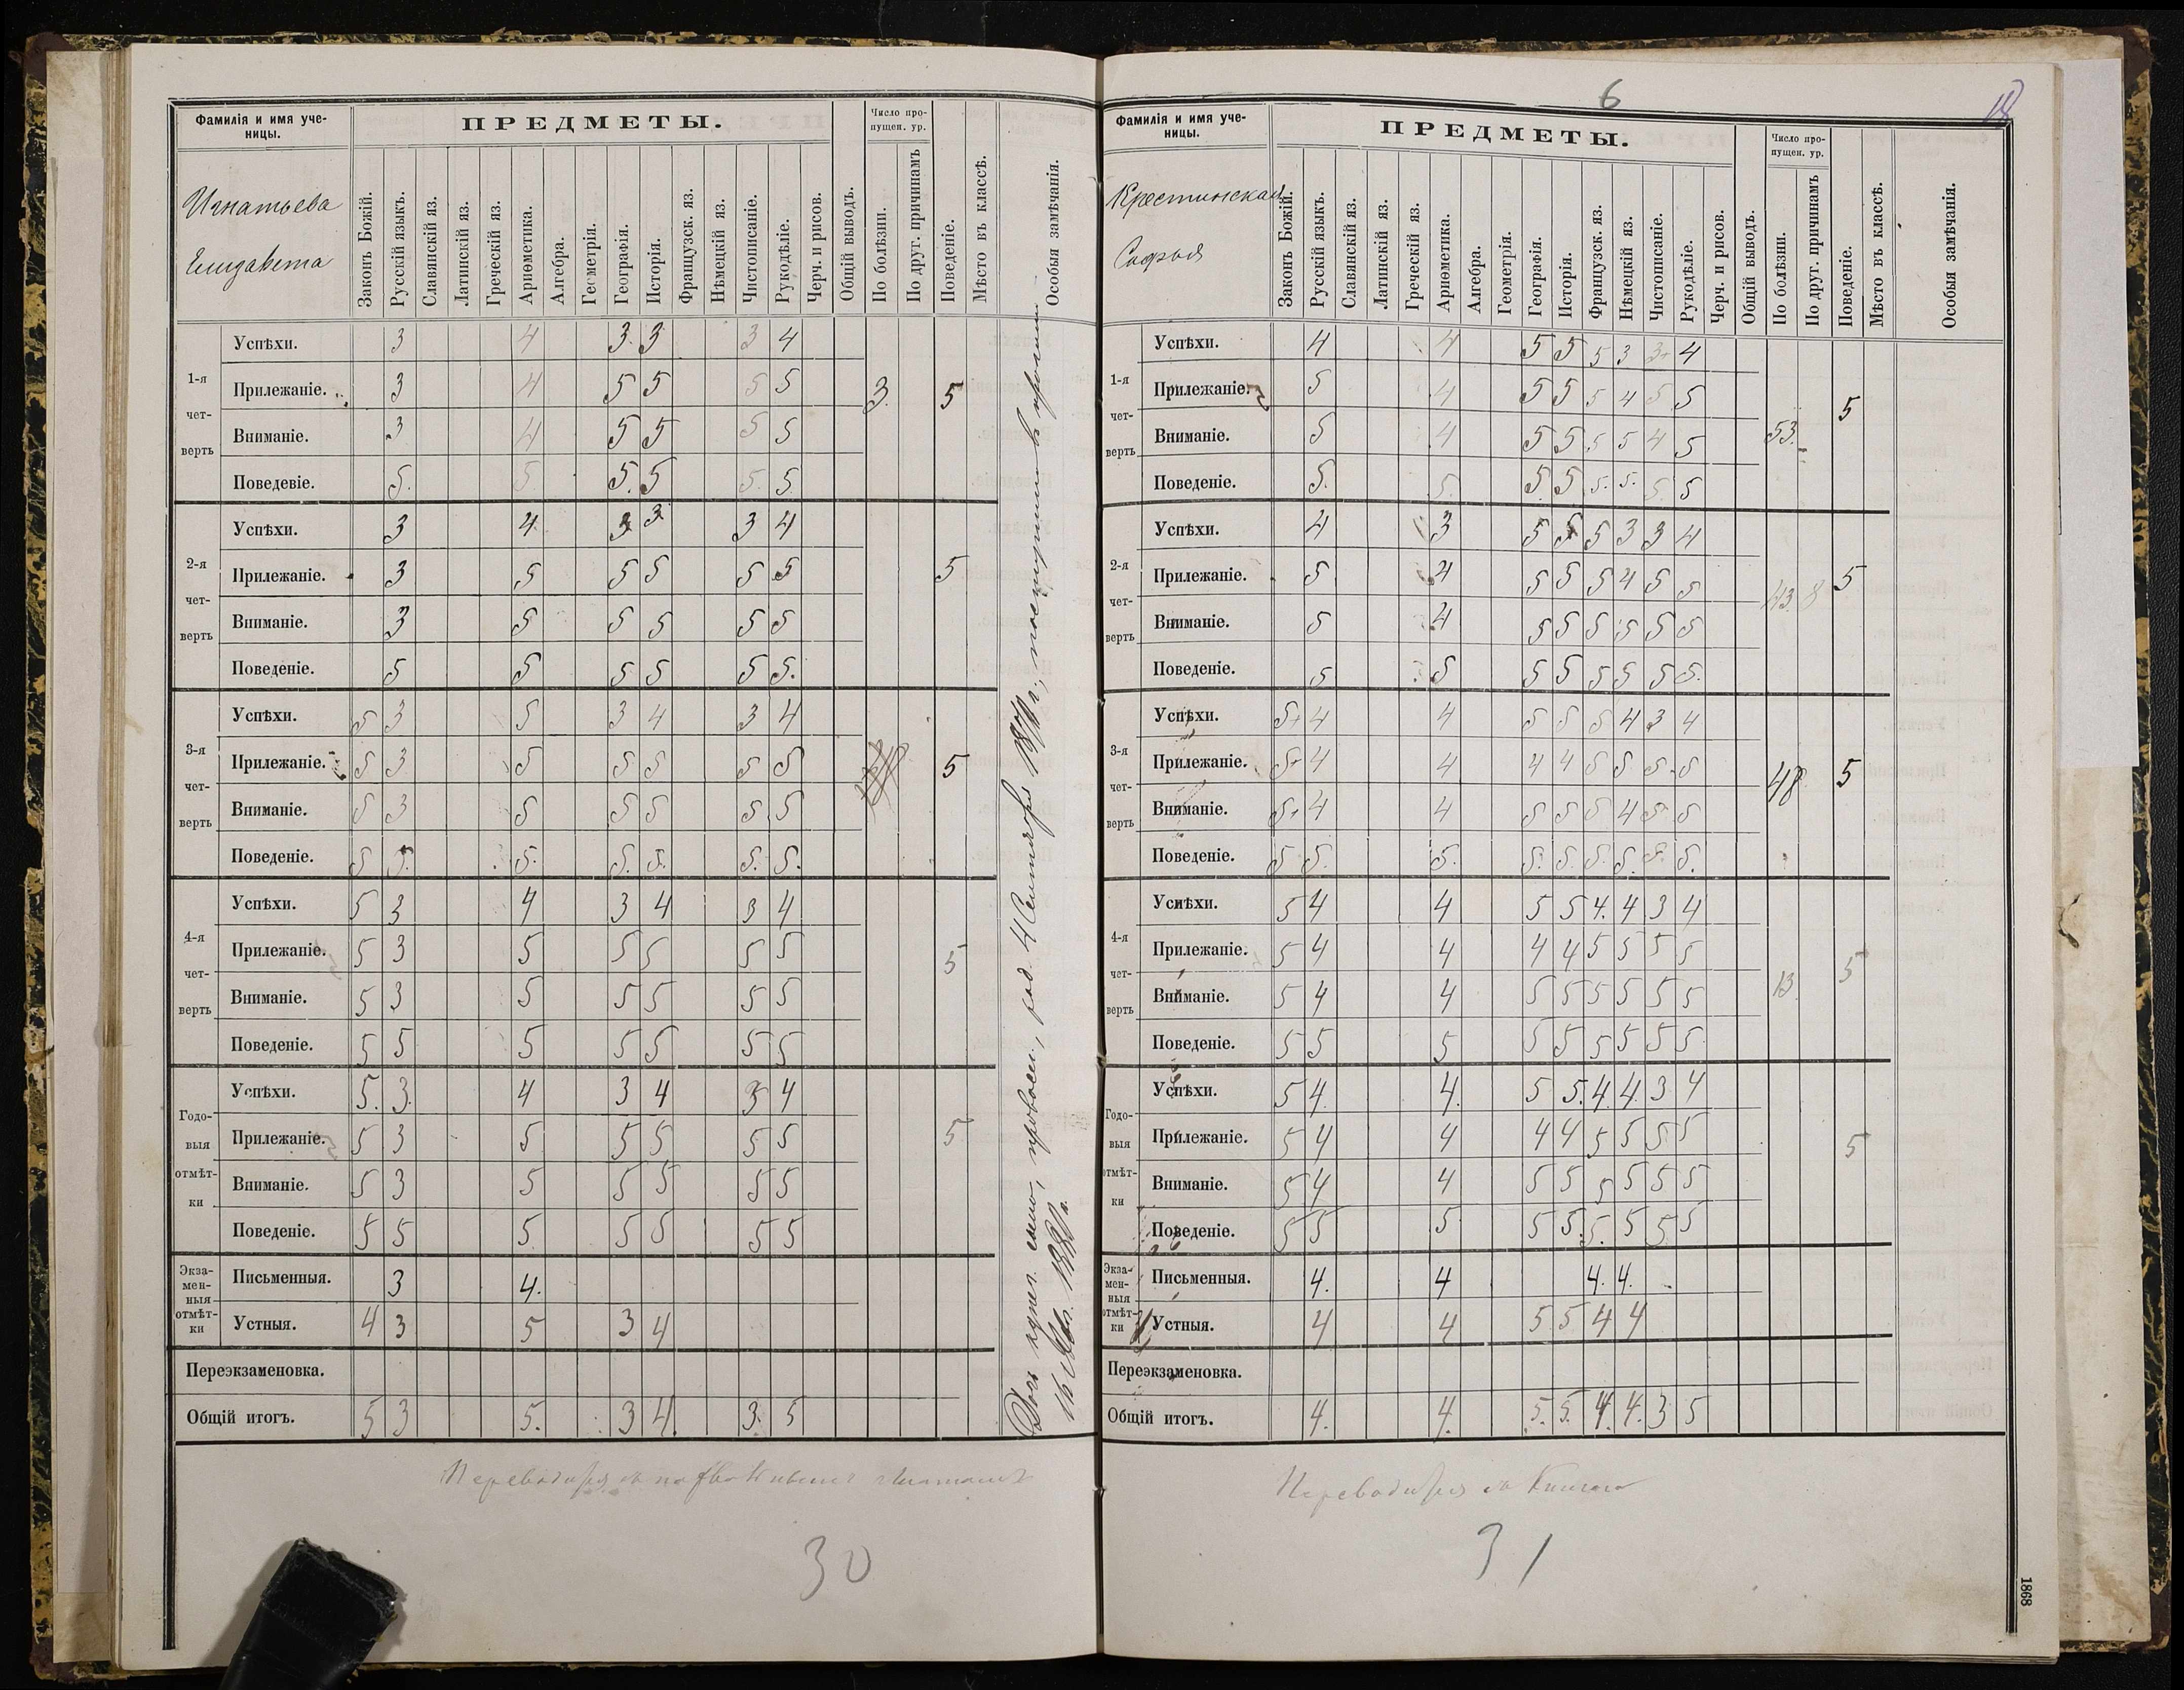 Фамилія и имя уче-
ницы.
ПРЕДМЕТЫ.
Число про-
пущен. ур.
Игнатьева
Елизавета
Законъ Божій.
Русскій языкъ.
Славянскій яз.
Латинскій яз.
Греческій яз.
Ариѳметика.
Алгебра.
Геометрія.
Географія.
Исторія.
Французск. яз.
Нѣмецкій яз.
Чистописаніе.
Рукодѣліе.
Черч. и рисов.
Общій выводъ.
По болѣзни.
По друг. причинамъ
Поведеніе.
Мѣсто въ классѣ.
Особыя замѣчанія.
1-я
чет-
верть
Успѣхи. 3 4 3 3 3 4
Прилежаніе. 3 4 5 5 5 5 3. 5
Вниманіе. 3 4 5 5 5 5
Поведевіе. 5. 5. 5. 5 5. 5.
2-я
чет-
верть
Успѣхи. 3 4. 3 3 3 4
Прилежаніе. 3 5 5 5 5 5 5
Вниманіе. 3 5 5 5 5 5
Поведеніе. 5 5 5 5 5 5.
3-я
чет-
верть
Успѣхи. 5 3 5 3 4 3 4
Прилежаніе. 5 3 5 5 5 5 5 5
Вниманіе. 5 3 5 5 5 5 5
Поведеніе. 5 5. 5. 5. 5. 5. 5.
4-я
чет-
верть
Успѣхи. 5 3 4 3 4 3 4
Прилежаніе. 5 3 5 5 5 5 5 5
Вниманіе. 5 3 5 5 5 5 5
Поведеніе. 5 5 5 5 5 5 5
Годо-
выя
отмѣт-
ки
Успѣхи. 5. 3. 4 3 4 3 4
Прилежаніе. 5 3 5 5 5 5 5 5
Вниманіе. 5 3 5 5 5 5 5
Поведеніе. 5 5 5. 5 5 5 5
Экза-
мен-
ныя
отмѣт-
ки
Письменныя. 3 4.
Устныя. 4 3 5 3 4
Переэкзаменовка.
Общій итогъ. 5 3 5. 3 4. 3. 5
Дочь, правосл., род. 4 Сентября
30
6
18
Фамилія и имя уче-
ницы.
ПРЕДМЕТЫ.
Число про-
пущен. ур.
Крестинская
Софья
Законъ Божій.
Русскій языкъ.
Славянскій яз.
Латинскій яз.
Греческій яз.
Ариѳметика.
Алгебра.
Геометрія.
Географія.
Исторія.
Французск. яз.
Нѣмецкій яз.
Чистописаніе.
Рукодѣліе.
Черч. и рисов.
Общій выводъ.
По болѣзни.
По друг. причинамъ
Поведеніе.
Мѣсто въ классѣ.
Особыя замѣчанія.
1-я
чет-
верть
Успѣхи. 4 4 5 5 5 3 3+ 4
Прилежаніе. 5 4 5 5 5 4 5 5 5
Вниманіе. 5 4 5 5 5 5 4 5 53.
Поведеніе. 5. 5. 5. 5 5. 5. 5. 5
2-я
чет-
верть
Успѣхи. 4 3 5 5 5 3 3 4
Прилежаніе. 5 4 5 5 5 4 5 5 43. 8 5
Вниманіе. 5 4 5 5 5 5 5 5
Поведеніе. 5 5 5 5 5 5 5 5.
3-я
чет-
верть
Успѣхи. 5+ 4 4 5 5 5 4 3 4
Прилежаніе. 5+ 4 4 4 4 5 5 5 5 48 5
Вниманіе. 5+ 4 4 5 5 5 4 5 5
Поведеніе. 5 5. 5. 5. 5. 5. 5. 5. 5.
4-я
чет-
верть
Успѣхи. 5 4 4 5 5 4. 4 3 4
Прилежаніе. 5 4 4 4 4 5 5 5 5 5
Вниманіе. 5 4 4 5 5 5 5 5 5 13.
Поведеніе. 5 5 5 5 5 5 5 5 5
Годо-
выя
отмѣт-
ки
Успѣхи. 5 4. 4. 5 5. 4. 4. 3 4
Прилежаніе. 5 4 4 4 4 5 5 5 5 5
Вниманіе. 5 4 4 5 5 5 5 5 5
Поведеніе. 5 5 5 5 5. 5. 5 5 5
Экза-
мен-
ныя
отмѣт-
ки
Письменныя. 4. 4 4. 4.
Устныя. 4 4 5 5 4 4
Переэкзаменовка.
Общій итогъ. 4. 4. 5. 5. 4. 4. 3 5
31
1868